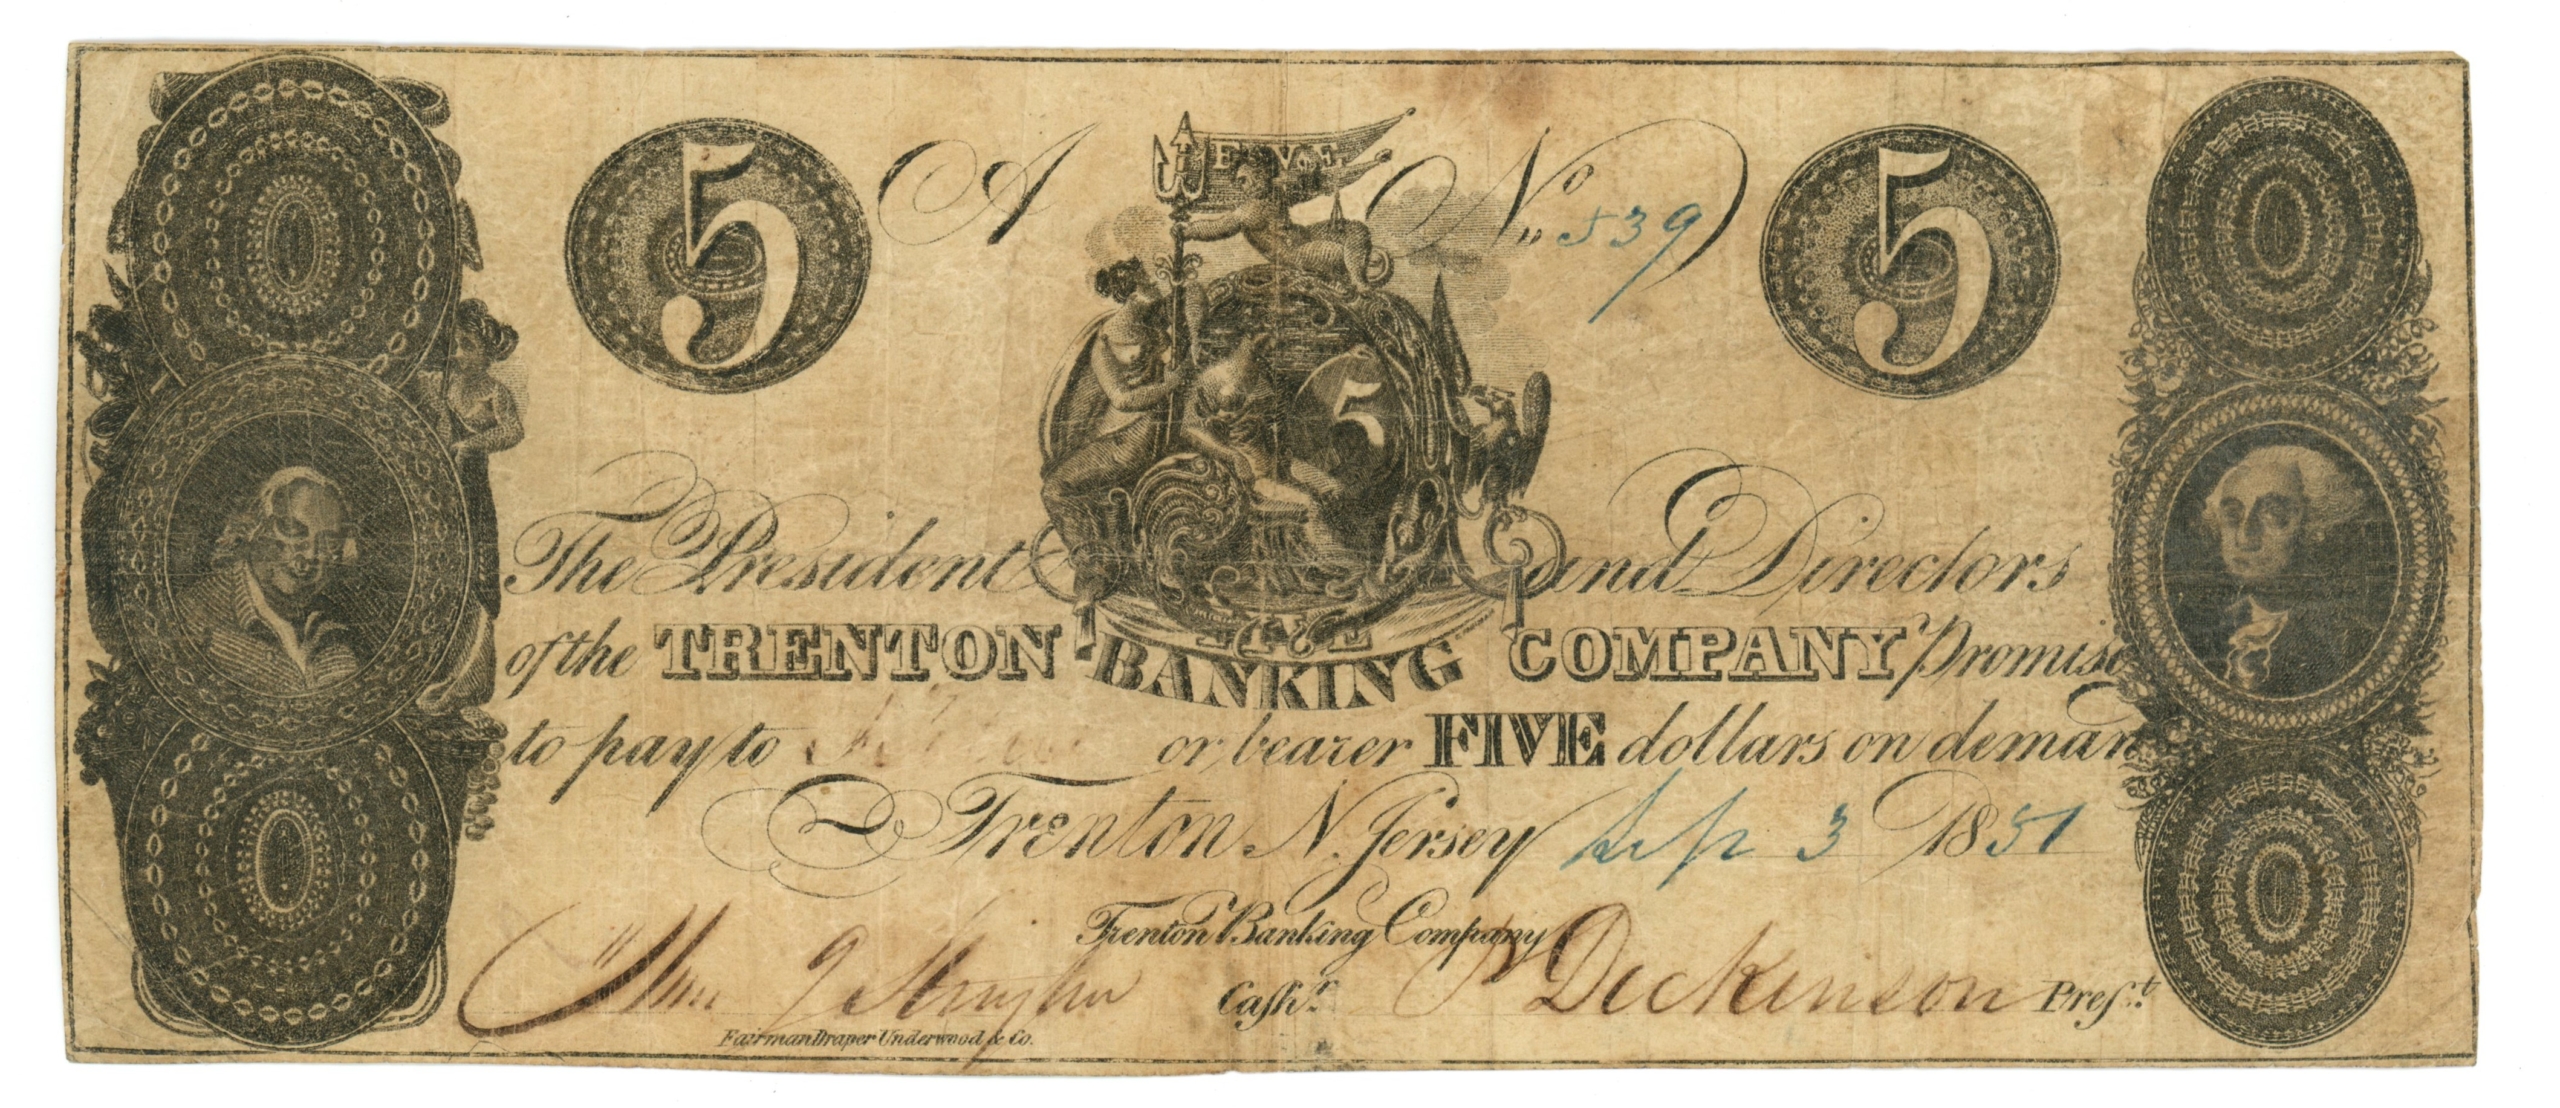 FIVE
5 A No 539 5
5
The President and Directors
of the TRENTON BANKING COMPANY Promise
to pay to or bearer FIVE dollars on deman
Trenton N. Jersey Sep 3 1851
Trenton Banking Company
Cashr. P Dickinson Prest.
Fairman Draper Underwood & Co.